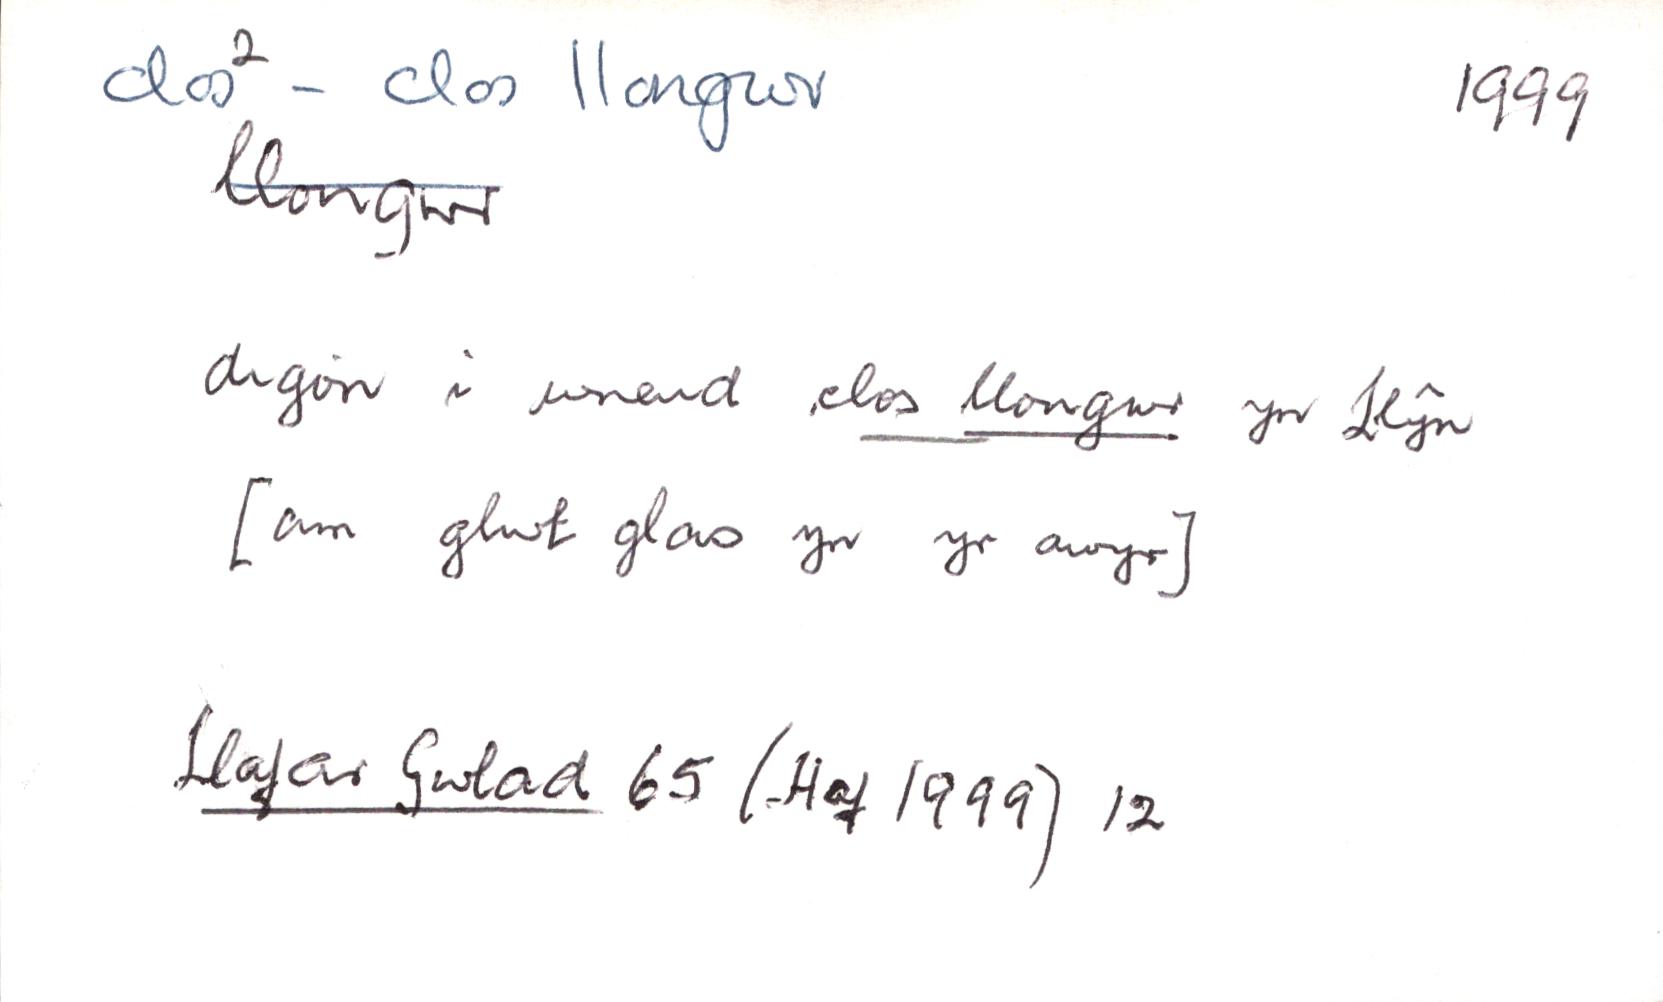 clos² - clos llongwr 1999
llongwr
digon i wneud clos llongwr yn Llŷn
[am glwt glas yn yr awyr]
Llafar Gwlad 65 (Haf 1999) 12